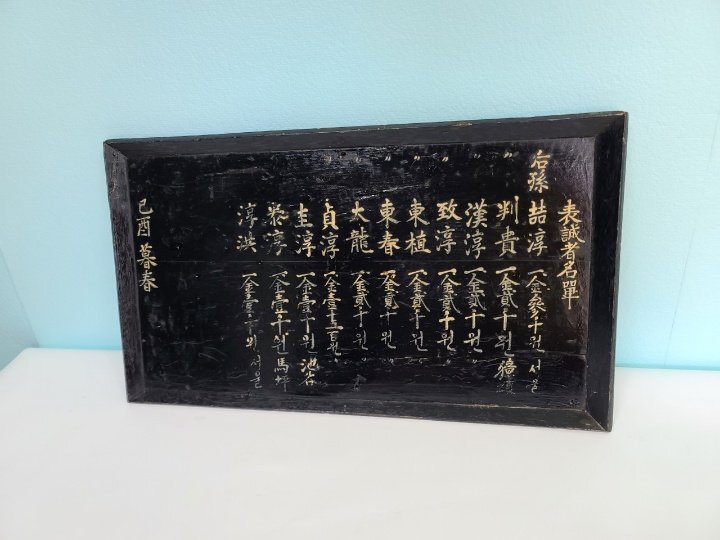 表誠者名單
后孫 喆淳 一金參千원 서울
〃 判貴 一金貳千원
〃 漢淳 一金貳千원 〃
〃 致淳 一金貳千원 〃
〃 東植 一金貳千원 〃
〃 東春 一金貳千원 〃
〃 大龍 一金貳千원 〃
〃 貞淳 一金壹千五百원
圭淳 一金壹千원 池谷
泰淳 一金壹千원 馬坪
淳洪 一金壹千원 서울
己酉 暮春